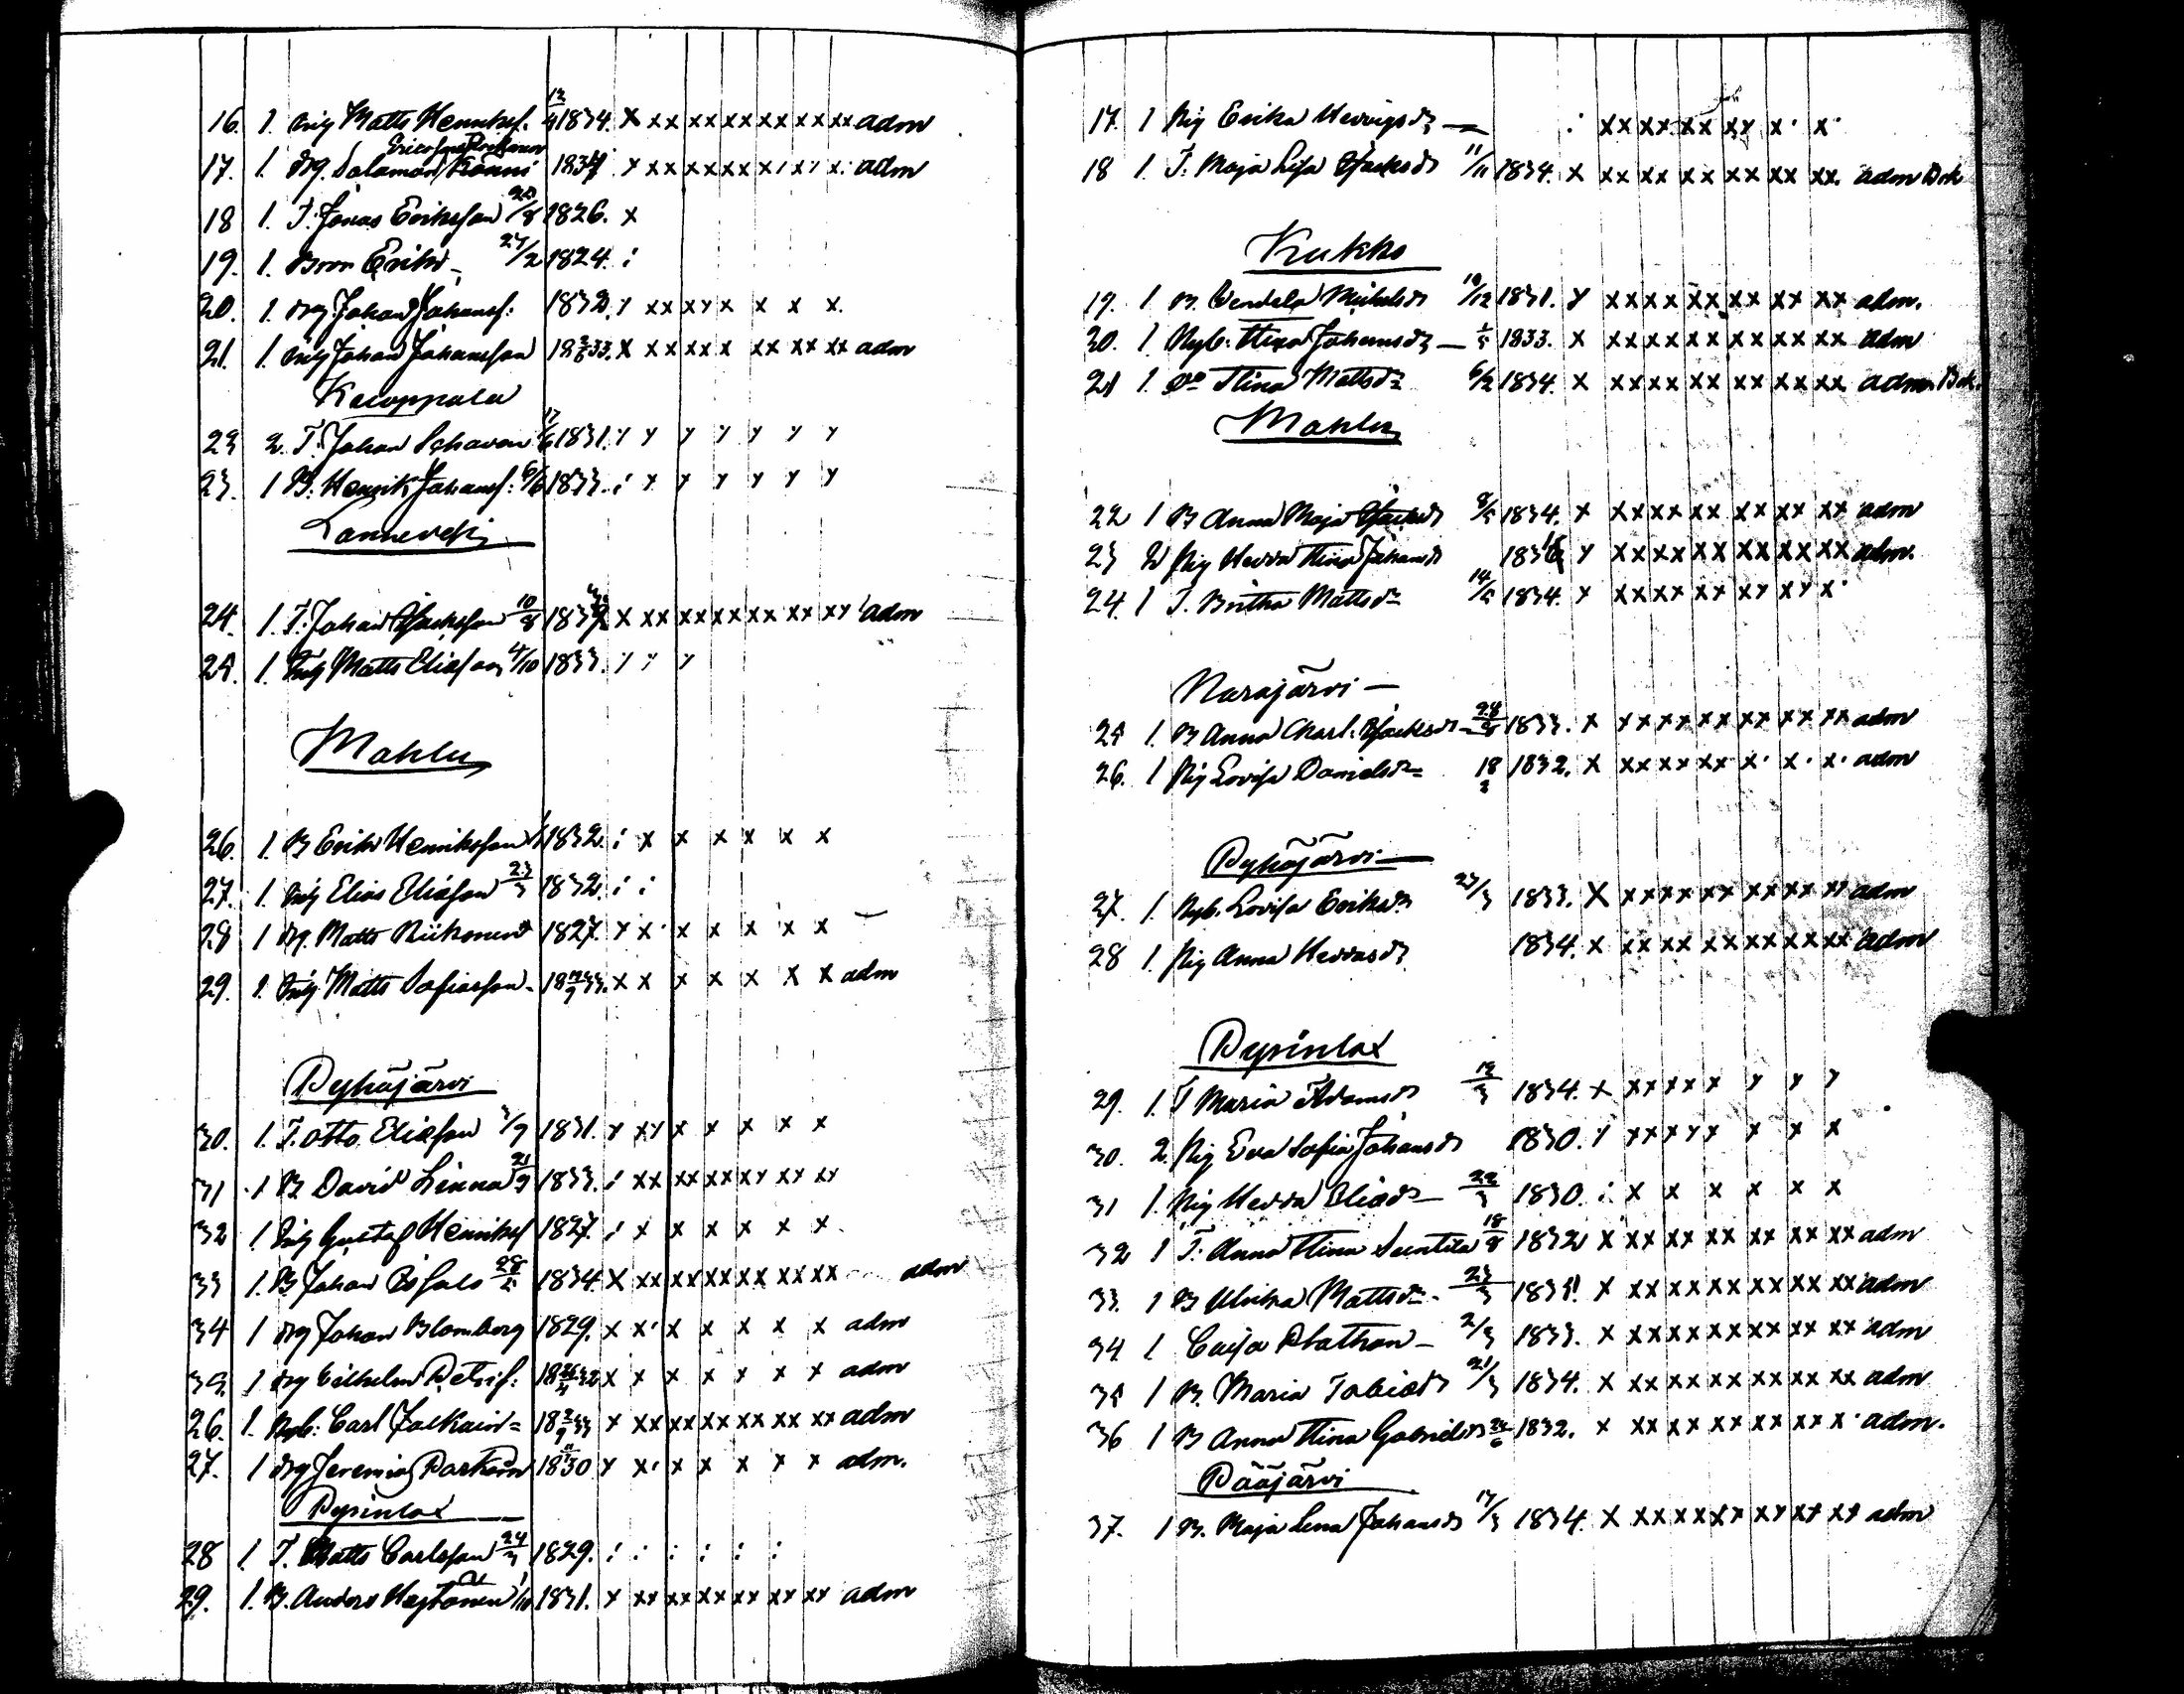 16. 1. Inh Matts Henriksf. 13/4 1834. x xx xx xx xx xx xx adm
Ericsson
17. 1. Drg. Salomon Könni 1834 x xx xx xx x x x adm
18 1. T. Jonas Eriksson 20/8 1826. x
19. 1. Bror Erik 27/2 1824. :
20. 1. Drg Johan Johansf: 1832. x xx xx x x x x
21. 1. Inh Johan Johansson 18 3/6 33. x xx xx x xx xx xx adm
Karoppala
23 2. T: Johan Schavon 17/6 1831. x x x x x x x
23. 1 B. Henrik Johansf: 6/6 1833. : x x x x x x
Lannevesi
24. 1. T. Johan Jacksson 10/8 1832 x xx xx xx xx xx xx adm
25. 1. Inh Matts Eliasson 4/10 1833. x x x
Mahlu
26. 1. B Erik Henriksson 1832. : x x x x x x
27. 1. Inh Elias Eliasson 23/3 1832. : :
28 1 Drg. Matts Riikonen 1827. x x x x x x x
29. 1. Inh Matts Sofiasson 18 /9 33. x x x x x x x adm
Pyhäjärvi
30. 1. T. Otto Eliasson 3/7 1831. x xx x x x x x
31 1 B David Linna 21/3 1833. : xx xx xx xx xx xx
32 1. Inh Gustaf Henriksf 1827. : x x x x x x
33 1. B Johan 28/5 1834 x xx xx xx xx xx xx adm
34 1 Drg Johan Blomberg 1829. x x x x x x x adm
35. 1 Drg Wilhelm Petrif: 18 26/4 32 x x x x x x x adm
26. 1. Nyb. Carl Jalkain= 18 2/9 33 x xx xx xx xx xx xx adm
27. 1 Drg Jeremias Parkon 1830 x x x x x x x adm.
Pyrinlax
28 1 T. Matts Carlsson 24/3 1829. : : : : : :
29. 1. B. Anders Heytänen 1/10 1831. x xx xx xx xx xx xx adm
17. 1 Pig Erika Hedvigsdr — : xx xx xx xx x x
18 1. T. Maja Lisa Jacksdr 11/11 1834. x xx xx xx xx xx xx adm Bok
Kukko
19. 1 B. Vendela Mickelsdr 19/12 1831. x xx xx xx xx xx xx adm.
20. 1 Nyb: Stina Johansdr — 1833. x xx xx xx xx xx xx adm
21 1. Do Stina Mattsdr 6/2 1834. x xx xx xx xx xx xx adm Bok.
Mahlu
22 1 B Anna Maja Jacksdr 8/5 1834. x xx xx xx xx xx xx adm
23 2 Pig Hedda Stina Johansdr 1836 x xx xx xx xx xx xx adm.
24. 1 T. Britha Mattsdr 14/5 1834. x xx xx xx xx xx x
Narajärvi —
25 1. B Anna Charl. Jacksdr 28/5 1833. x xx xx xx xx xx xx adm
26. 1 Pig Lovisa Danielsdr 18/2 1832. x xx xx xx x x x adm
Pyhäjärvi —
27. 1. Nyb. Lovisa Eriksdr 23/3 1833. x xx xx xx xx xx xx adm
28 1. Pig Anna Heddasdr 1834. x xx xx xx xx xx xx adm
Pyrinlax
29. 1. T Maria Adamsdr 12/3 1834. x xx xx x x x x
30. 2. Pig Eva Sofia Johansdr 1830. x xx xx x x x x
31 1. Pig Hedda Eliadr — 22/3 1830. : x x x x x x
32 1 T. Anna Stina Santila 18/8 1832 x xx xx xx xx xx xx adm
33. 1 B Ulrika Mattsdr. 23/3 1831 x xx xx xx xx xx xx adm
34 1 Caisa Plathan — 2/3 1833. x xx xx xx xx xx xx adm
35 1 B. Maria Tobiedr 21/3 1834. x xx xx xx xx xx xx adm
36 1 B Anna Stina Gabrielsdr 24/6 1832. x xx xx xx xx xx x adm.
Pääjärvi
37. 1 B. Maja Lena Johansdr 17/3 1834. x xx xx xx xx xx xx adm